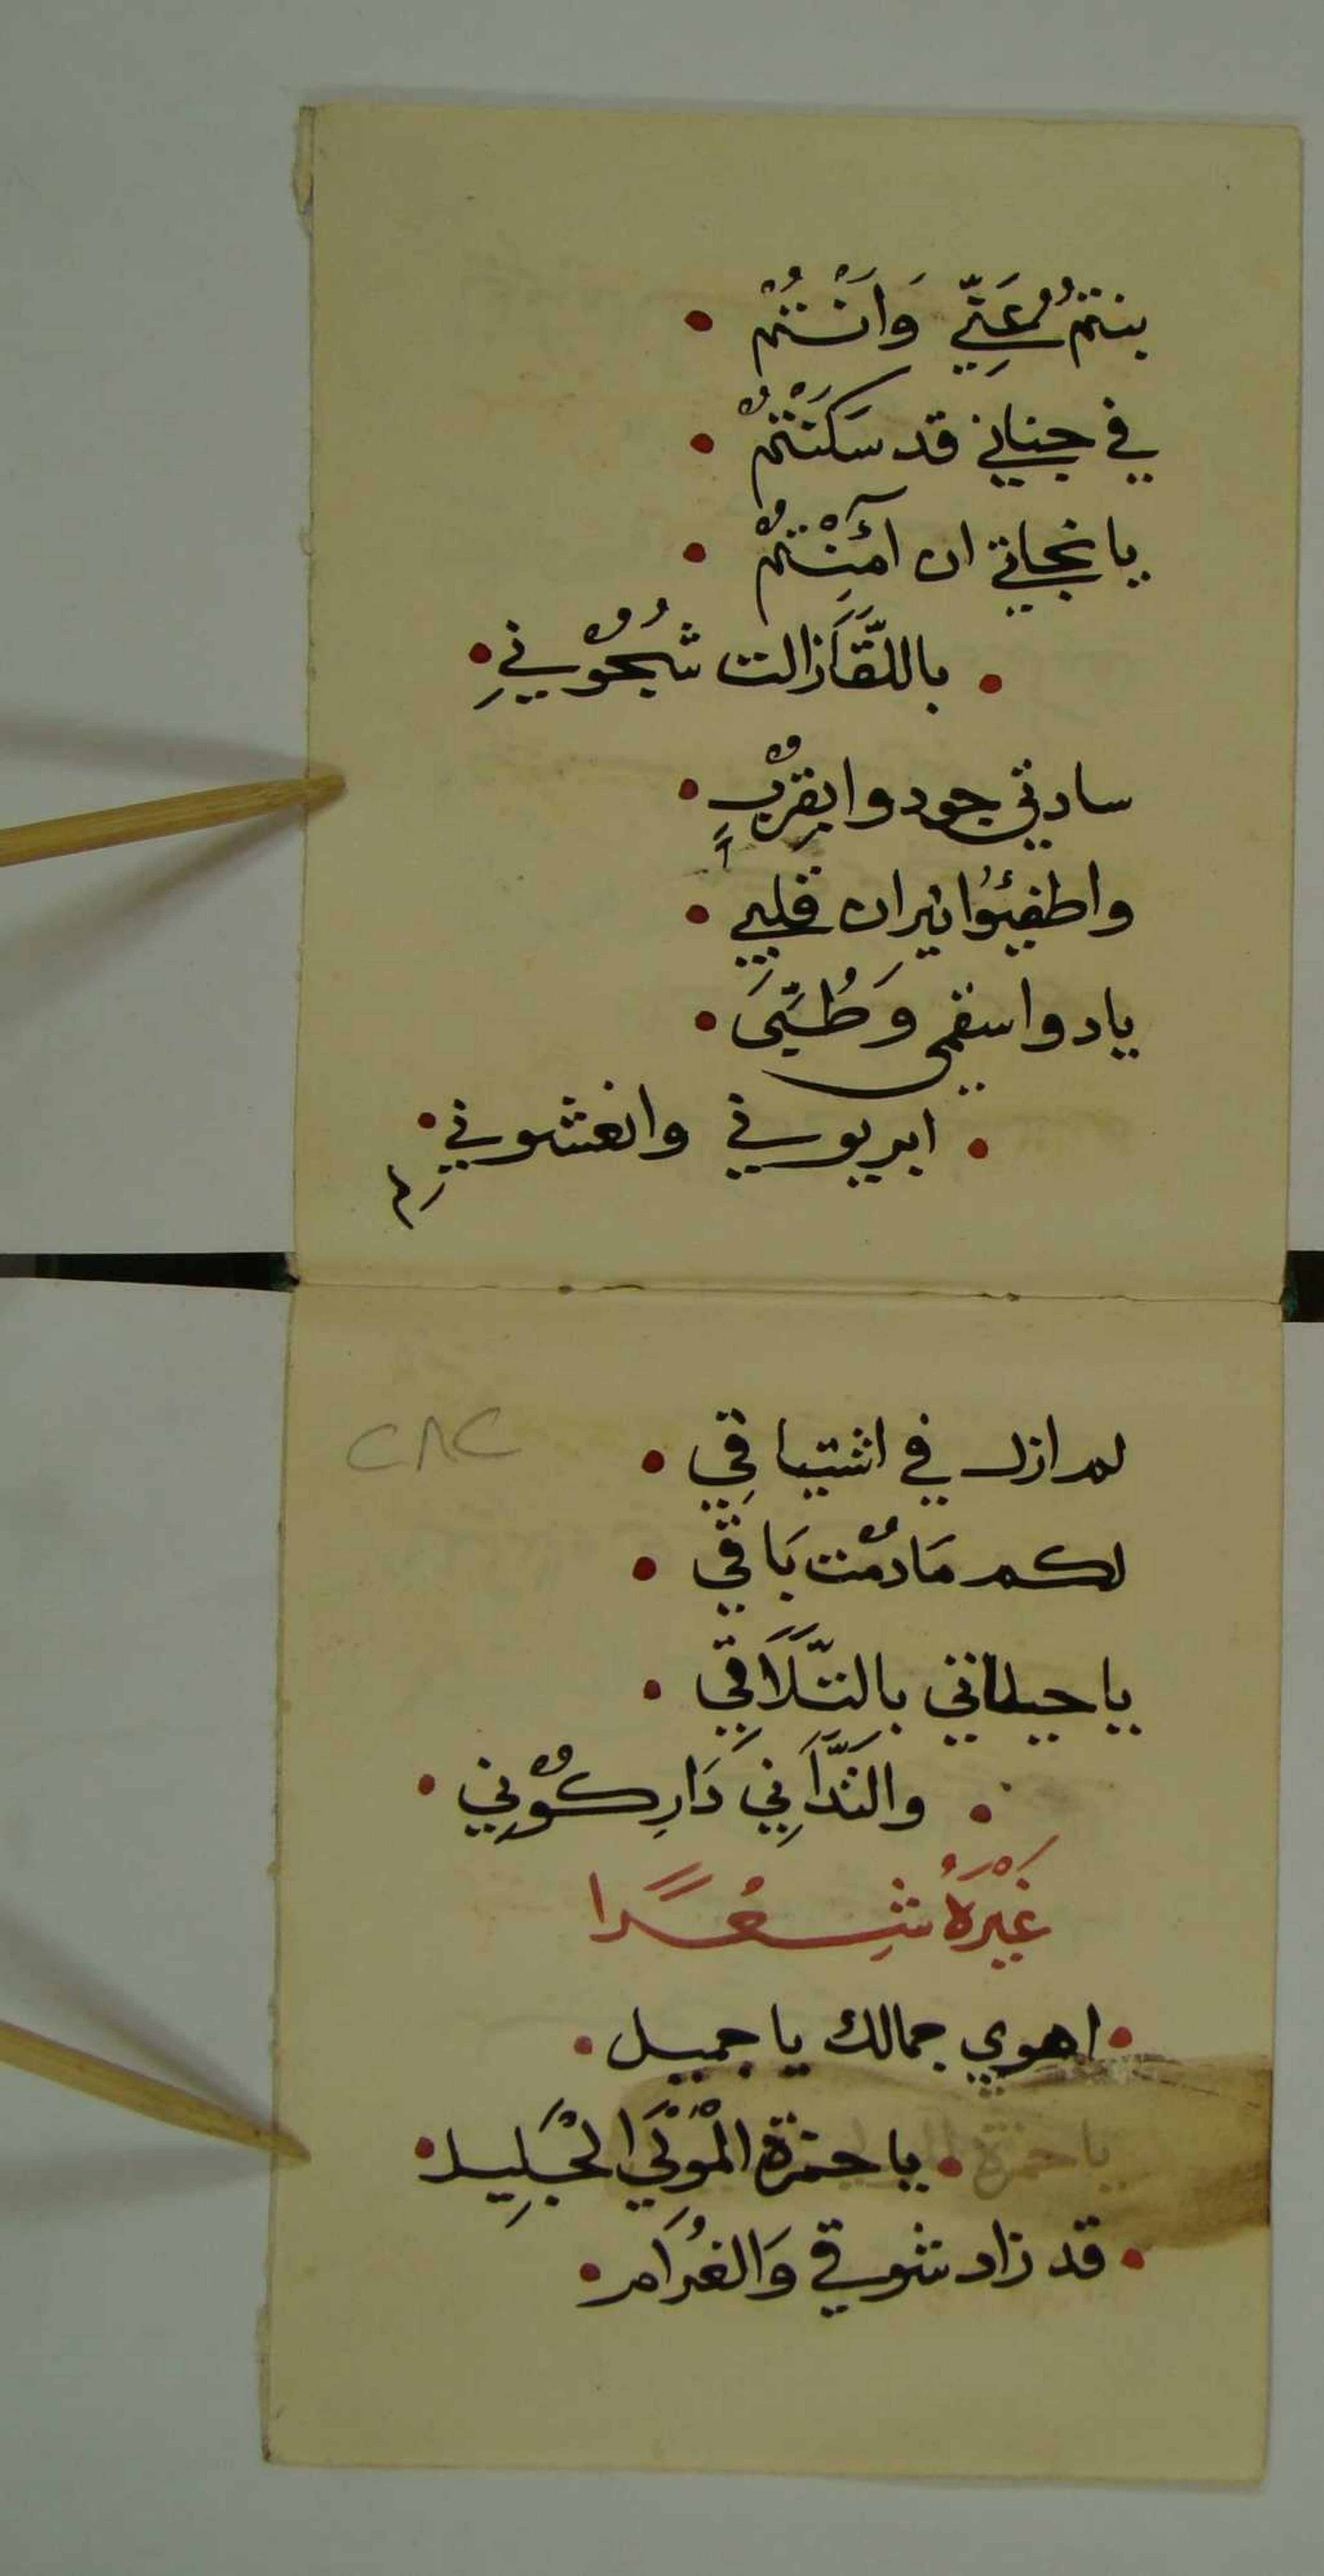 بنتمُ عَنِّي وَانْتُمْ •
في جناني قد سَكَنْتُمْ •
يا نجاتي ان آمَنْتُمْ •
• باللّقَا زالت شُجُوْنيِ •
سادتي جودوا بقرْبٍ •
واطفئوُا نيران قلبيِ •
يا دوا سقمي وَطُبِّى •
• ابريوني وانعشوني •
م
٢٨٢
لم ازل في اشتياقِي •
لكم مَا دمْت بَاقي •
يا حيلتي بالتَّلَاقِي •
• والتَّدَانِي دَارِكُوْنِي •
غَيْرَهُ شِعُرًا
• اهوي جمالك يا جميل •
• يا حمزة الْمَوْلَي الْجَلِيل •
• قد زاد شوقي وَالغُرَام •